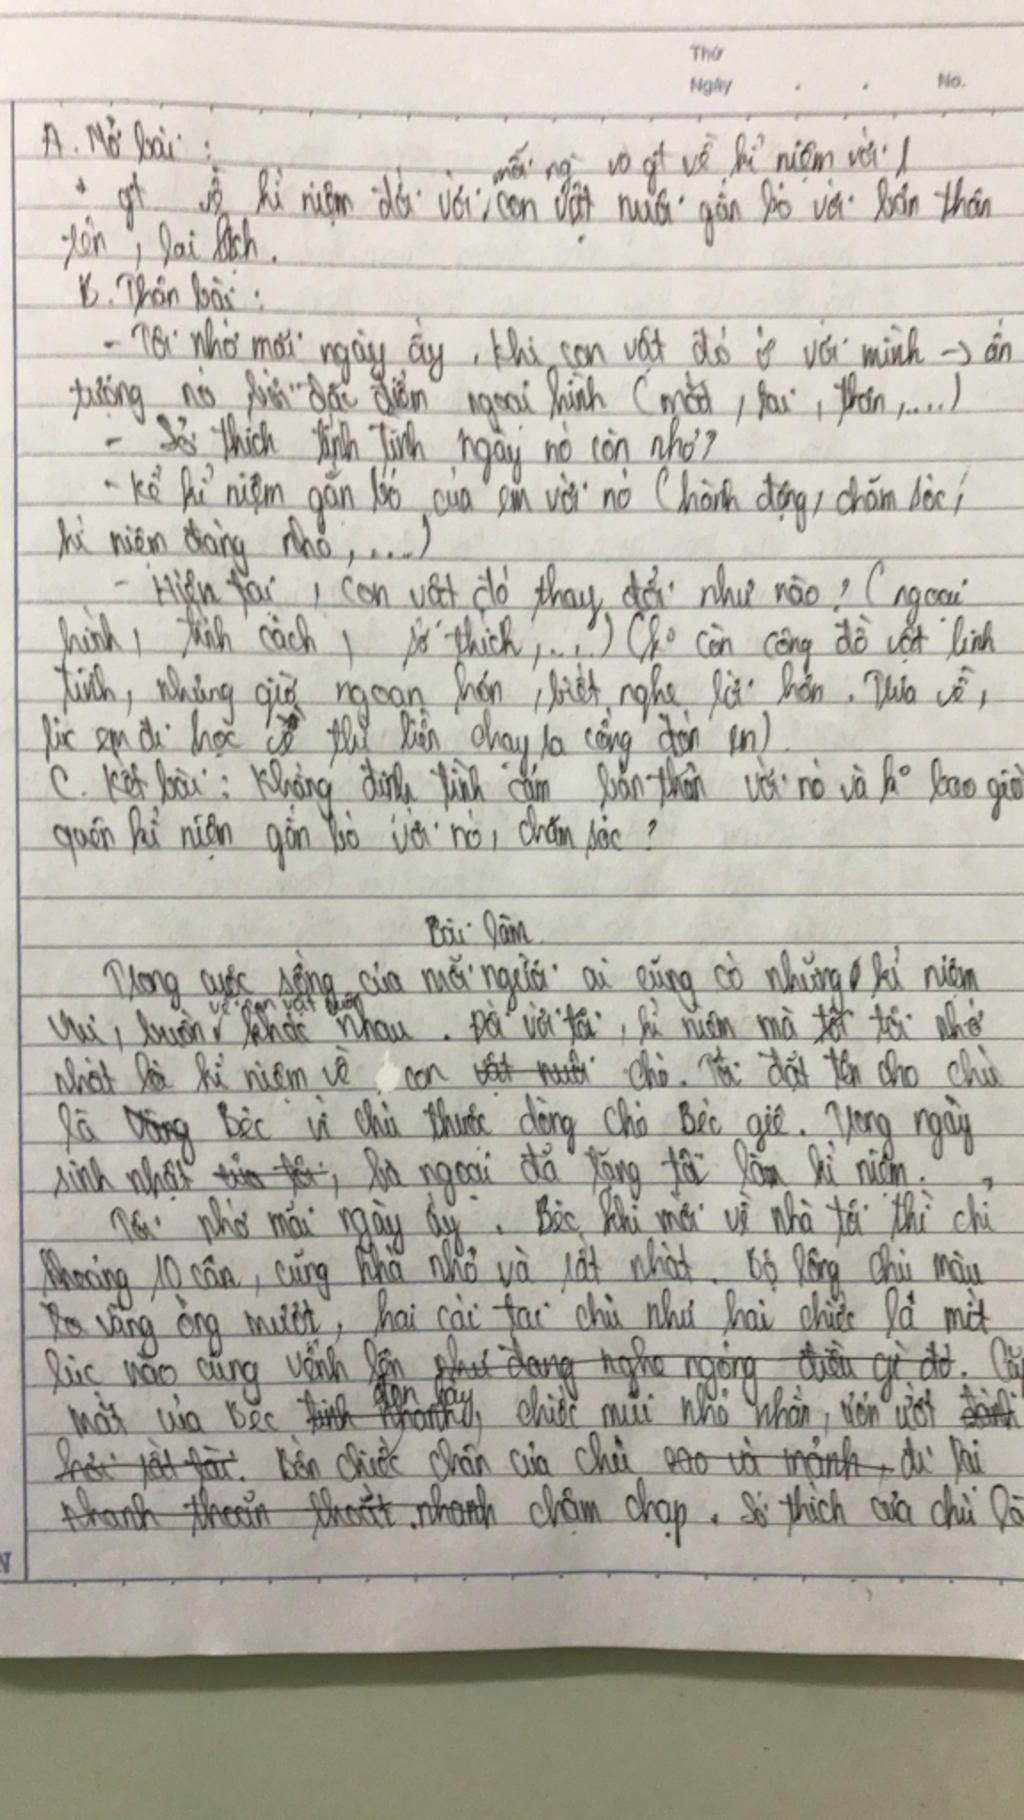 Thứ
Ngày . . No.
A. Mở bài :
mỗi ng vo gt về kỉ niệm với 1
* gt về kỉ niệm đối với con vật nuôi gắn bó với bản thân
tên, lai lịch.
B. Thân bài :
- Tôi nhớ mãi ngày ấy, khi con vật đó ở với mình → ấn
tượng nó bởi đặc điểm ngoại hình (mắt, tai, thân,....)
- Sở thích tính tình ngày nó còn nhỏ?
- Kể kỉ niệm gắn bó của em với nó (hành động, chăm sóc,
kỉ niệm đáng nhớ,....)
- Hiện tại, con vật đó thay đổi như nào? (ngoại
hình, tính cách, sở thích,...) (ko còn công đồ vật linh
tinh, nhưng giờ ngoan hơn, biết nghe lời hơn. Vừa về,
lúc em đi học về thì liền chạy ra cổng đón em)
C. Kết bài : Khẳng định tình cảm bản thân với nó và ko bao giờ
quên kỉ niệm gắn bó với nó, chăm sóc?
Bài làm
Trong cuộc sống của mỗi người ai cũng có những kỉ niệm
về con vật nuôi
vui, buồn khác nhau. Đối với tôi, kỉ niệm mà tôi tôi nhớ
nhất là kỉ niệm về con vật nuôi chó. Tôi đặt tên cho chú
là Vàng Béc vì chú thuộc dòng chó Béc giê. Trong ngày
sinh nhật của tôi, bà ngoại đã tặng tôi làm kỉ niệm.
Tôi nhớ mãi ngày ấy. Béc khi mới về nhà tôi thì chỉ
khoảng 10 cân, cũng khá nhỏ và rất nhát. Bộ lông chú màu
vàng óng mượt, hai cái tai chú như hai chiếc lá mít
lúc nào cũng vểnh lên như đang nghe ngóng điều gì đó. Cặp
đen láy
mắt của Béc tinh nhanh, chiếc mũi nhỏ nhắn, ươn ướt đánh
hơi rất tài. Bốn chiếc chân của chú cao và mảnh, đi lại
nhanh thoăn thoắt. nhanh chậm chạp. Sở thích của chú là